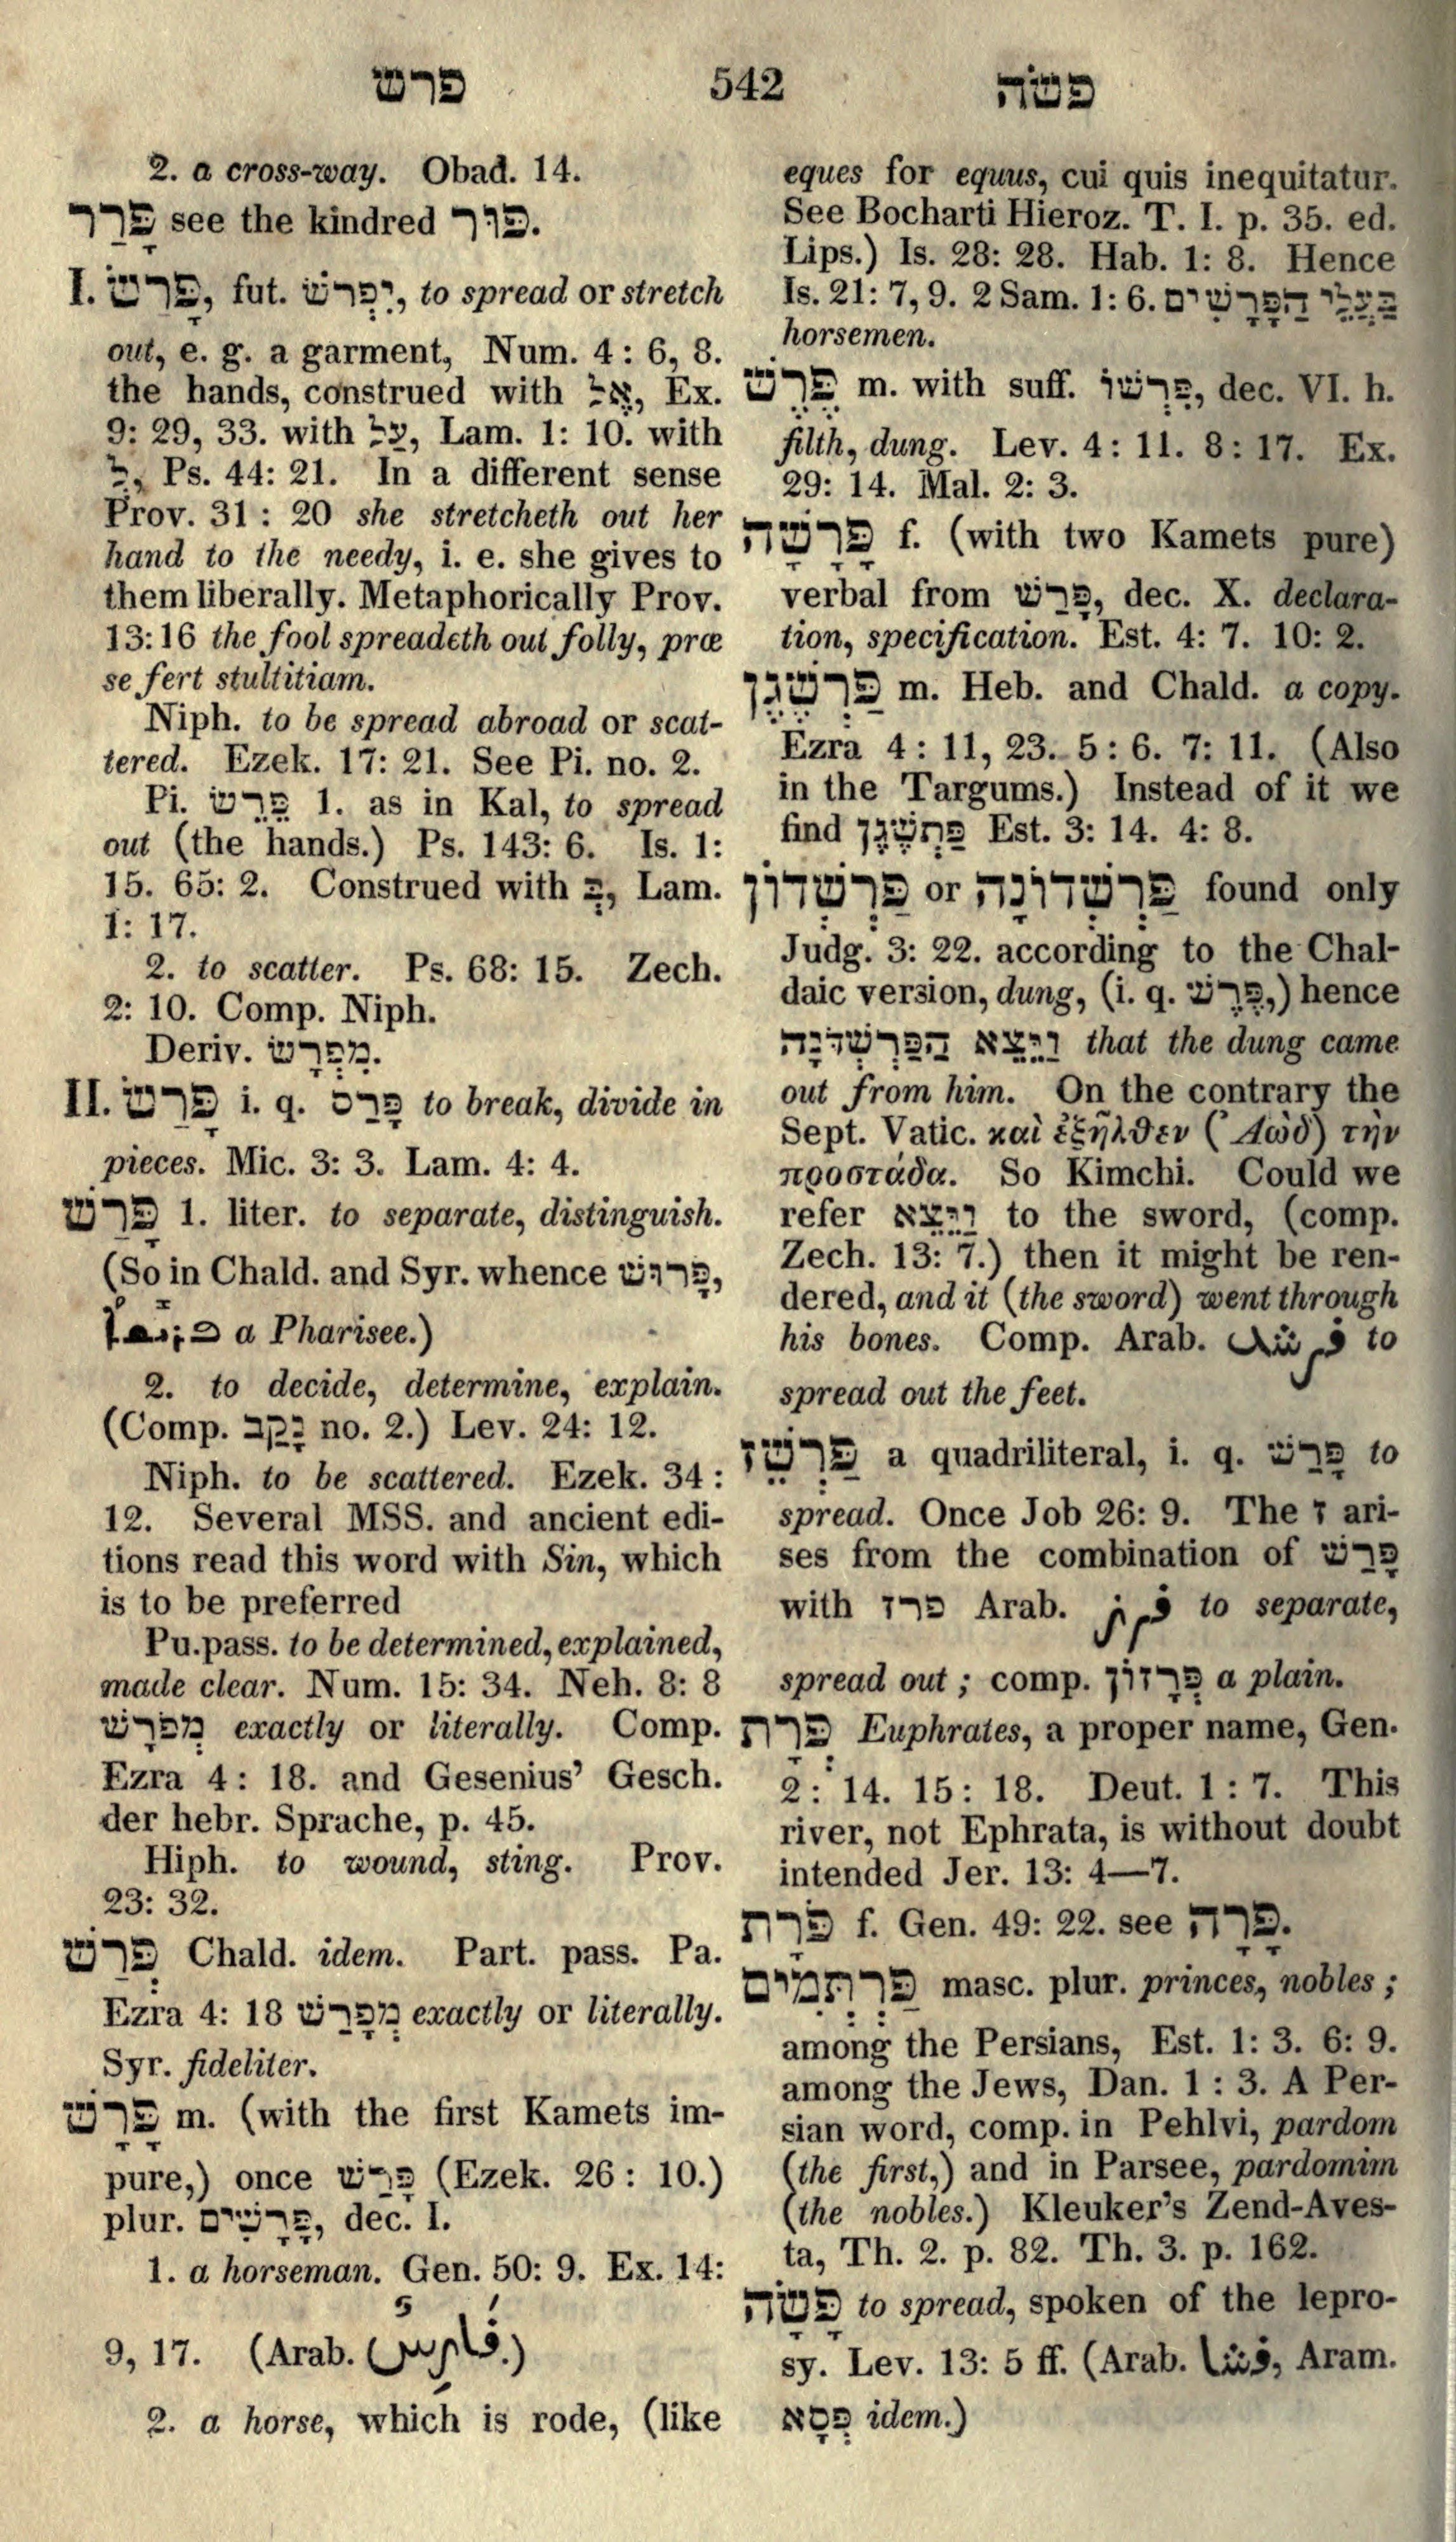 פרש 542 פשׂה
2. a cross-way. Obad. 14.
פָּרַר see the kindred פּוּר.
I. פָּרַשׂ, fut. יִפְרֹשׂ, to spread or stretch
out, e. g. a garment, Num. 4: 6, 8.
the hands, construed with אֶל, Ex.
9: 29, 33. with עַל, Lam. 1: 10. with
לְ, Ps. 44: 21. In a different sense
Prov. 31: 20 she stretcheth out her
hand to the needy, i. e. she gives to
them liberally. Metaphorically Prov.
13:16 the fool spreadeth out folly, præ
se fert stultitiam.
Niph. to be spread abroad or scat-
tered. Ezek. 17: 21. See Pi. no. 2.
Pi. פֵּרֵשׂ 1. as in Kal, to spread
out (the hands.) Ps. 143: 6. Is. 1:
15. 65: 2. Construed with בְּ, Lam.
1: 17.
2. to scatter. Ps. 68: 15. Zech.
2: 10. Comp. Niph.
Deriv. מִפְרָשׂ.
II. פָּרַשׂ i. q. פָּרַס to break, divide in
pieces. Mic. 3: 3. Lam. 4: 4.
פָּרַשׁ 1. liter. to separate, distinguish.
(So in Chald. and Syr. whence פָּרוּשׁ,
ܦܪܝܫܐ a Pharisee.)
2. to decide, determine, explain.
(Comp. נָקַב no. 2.) Lev. 24: 12.
Niph. to be scattered. Ezek. 34:
12. Several MSS. and ancient edi-
tions read this word with Sin, which
is to be preferred
Pu. pass. to be determined, explained,
made clear. Num. 15: 34. Neh. 8: 8
מְפֹרָשׁ exactly or literally. Comp.
Ezra 4: 18. and Gesenius' Gesch.
der hebr. Sprache, p. 45.
Hiph. to wound, sting. Prov.
23: 32.
פְּרַשׁ Chald. idem. Part. pass. Pa.
Ezra 4: 18 מְפָרַשׁ exactly or literally.
Syr. fideliter.
פָּרָשׁ m. (with the first Kamets im-
pure,) once פָּרַשׁ (Ezek. 26: 10.)
plur. פָּרָשִׁים, dec. I.
1. a horseman. Gen. 50: 9. Ex. 14:
9, 17. (Arab. فَارِسٌ.)
2. a horse, which is rode, (like
eques for equus, cui quis inequitatur.
See Bocharti Hieroz. T. I. p. 35. ed.
Lips.) Is. 28: 28. Hab. 1: 8. Hence
Is. 21: 7, 9. 2 Sam. 1: 6. בַּעֲלֵי הַפָּרָשִׁים
horsemen.
פֶּרֶשׁ m. with suff. פִּרְשׁוֹ, dec. VI. h.
filth, dung. Lev. 4: 11. 8: 17. Ex.
29: 14. Mal. 2: 3.
פָּרָשָׁה f. (with two Kamets pure)
verbal from פָּרַשׁ, dec. X. declara-
tion, specification. Est. 4: 7. 10: 2.
פַּרְשֶׁגֶן m. Heb. and Chald. a copy.
Ezra 4: 11, 23. 5: 6. 7: 11. (Also
in the Targums.) Instead of it we
find פַּתְשֶׁגֶן Est. 3: 14. 4: 8.
פַּרְשְׁדוֹן or פַּרְשְׁדוֹנָה found only
Judg. 3: 22. according to the Chal-
daic version, dung, (i. q. פֶּרֶשׁ,) hence
וַיֵּצֵא הַפַּרְשְׁדֹנָה that the dung came
out from him. On the contrary the
Sept. Vatic. καὶ ἐξῆλθεν (Ἀὼδ) τὴν
προστάδα. So Kimchi. Could we
refer וַיֵּצֵא to the sword, (comp.
Zech. 13: 7.) then it might be ren-
dered, and it (the sword) went through
his bones. Comp. Arab. فرشد to
spread out the feet.
פַּרְשֵׁז a quadriliteral, i. q. פָּרַשׁ to
spread. Once Job 26: 9. The ז ari-
ses from the combination of פָּרַשׁ
with פרז Arab. فرز to separate,
spread out; comp. פְּרָזוֹן a plain.
פְּרָת Euphrates, a proper name, Gen.
2: 14. 15: 18. Deut. 1: 7. This
river, not Ephrata, is without doubt
intended Jer. 13: 4—7.
פֹּרָת f. Gen. 49: 22. see פָּרָה.
פַּרְתְּמִים masc. plur. princes, nobles;
among the Persians, Est. 1: 3. 6: 9.
among the Jews, Dan. 1: 3. A Per-
sian word, comp. in Pehlvi, pardom
(the first,) and in Parsee, pardomim
(the nobles.) Kleuker's Zend-Aves-
ta, Th. 2. p. 82. Th. 3. p. 162.
פָּשָׂה to spread, spoken of the lepro-
sy. Lev. 13: 5 ff. (Arab. فشا, Aram.
פְּסָא idem.)